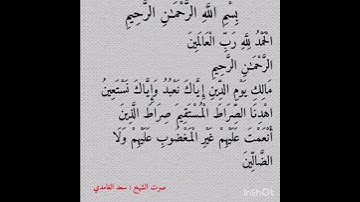 بِسْمِ اللَّهِ الرَّحْمَٰنِ الرَّحِيمِ
الْحَمْدُ لِلَّهِ رَبِّ الْعَالَمِينَ
الرَّحْمَٰنِ الرَّحِيمِ
مَالِكِ يَوْمِ الدِّينِ إِيَّاكَ نَعْبُدُ وَإِيَّاكَ نَسْتَعِينُ
اهْدِنَا الصِّرَاطَ الْمُسْتَقِيمَ صِرَاطَ الَّذِينَ
أَنْعَمْتَ عَلَيْهِمْ غَيْرِ الْمَغْضُوبِ عَلَيْهِمْ وَلَا
الضَّالِّينَ
صوت الشيخ : سعد الغامدي
InShOt